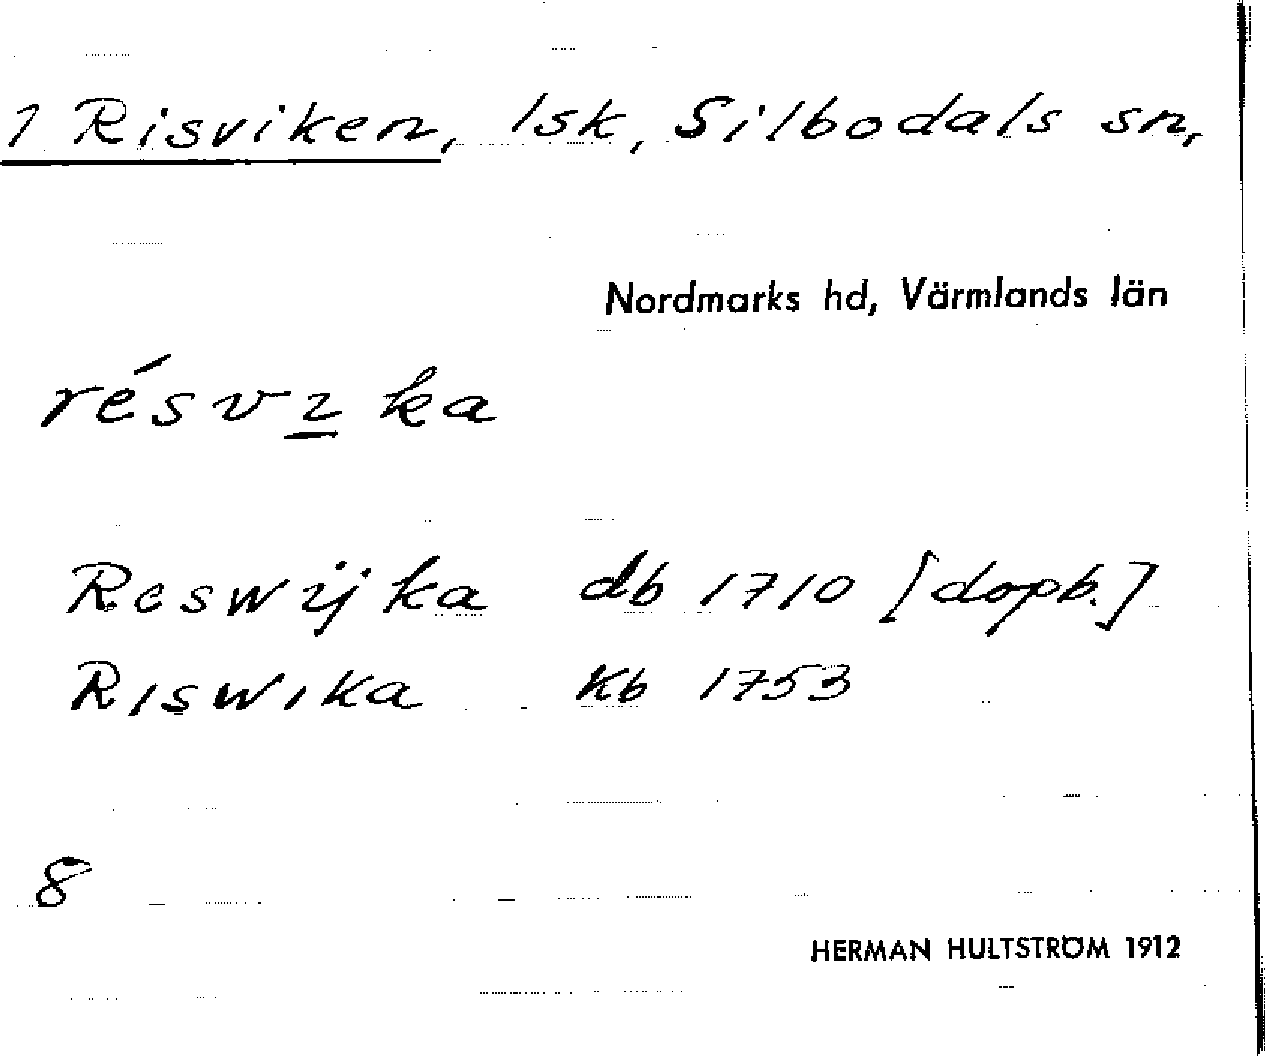 1 Risviken, lsk, Silbodals sn,
Nordmarks hd, Värmlands län
résvɩ̠ka
Reswijka db 1710 [dopb.]
Riswika Kb 1753
8
HERMAN HULTSTRÖM 1912